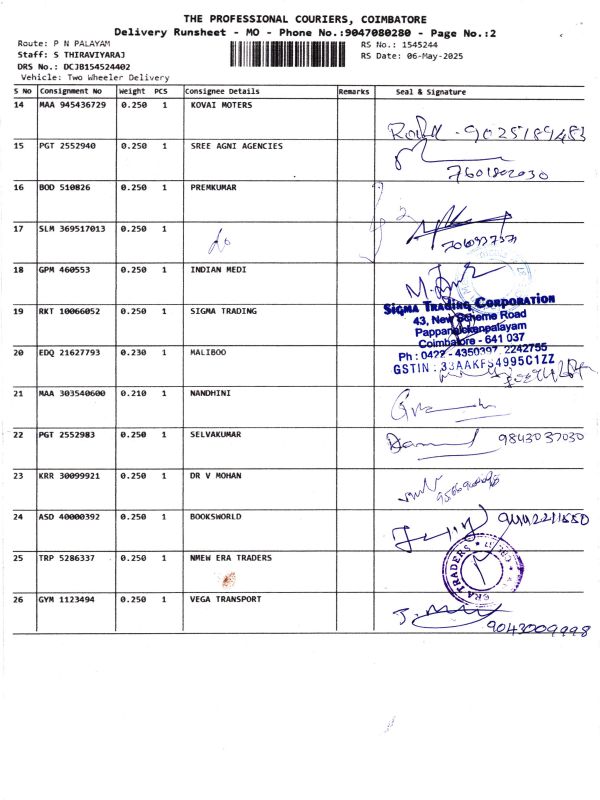 THE PROFESSIONAL COURIERS, COIMBATORE
Delivery Runsheet - MO - Phone No.:9047080280 - Page No.:2
Route: P N PALAYAM
RS No.: 1545244
Staff: S THIRAVIYARAJ
RS Date: 06-May-2025
DRS No.: DCJB154524402
Vehicle: Two Wheeler Delivery
S No Consignment No Weight PCS Consignee Details Remarks Seal & Signature
14 MAA 945436729 0.250 1 KOVAI MOTERS
9025189483
15 PGT 2552940 0.250 1 SREE AGNI AGENCIES
7601802030
16 BOD 510826 0.250 1 PREMKUMAR
17 SLM 369517013 0.250 1 do
18 GPM 460553 0.250 1 INDIAN MEDI
19 RKT 10066052 0.250 1 SIGMA TRADING
SIGMA TRADING CORPORATION
43, New Scheme Road
Pappanaickenpalayam
Coimbatore - 641 037
Ph : 0422 - 4350397, 2242755
GSTIN : 33AAKFS4995C1ZZ
20 EDQ 21627793 0.230 1 MALIBOO
21 MAA 303540600 0.210 1 NANDHINI
22 PGT 2552983 0.250 1 SELVAKUMAR
9843037030
23 KRR 30099921 0.250 1 DR V MOHAN
24 ASD 40000392 0.250 1 BOOKSWORLD
25 TRP 5286337 0.250 1 NMEW ERA TRADERS
ERA TRADERS
26 GYM 1123494 0.250 1 VEGA TRANSPORT
9043009998